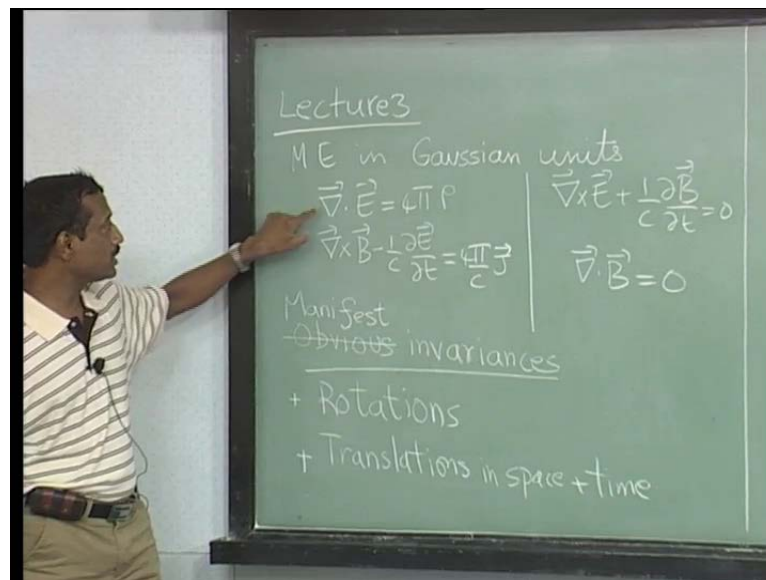 Lecture3
M E in Gaussian units
∇⃗·E⃗ = 4πρ
∇⃗×B⃗ - 1/c ∂E⃗/∂t = 4π/c J⃗
∇⃗×E⃗ + 1/c ∂B⃗/∂t = 0
∇⃗·B⃗ = 0
Manifest
Obvious invariances
+ Rotations
+ Translations in space + time